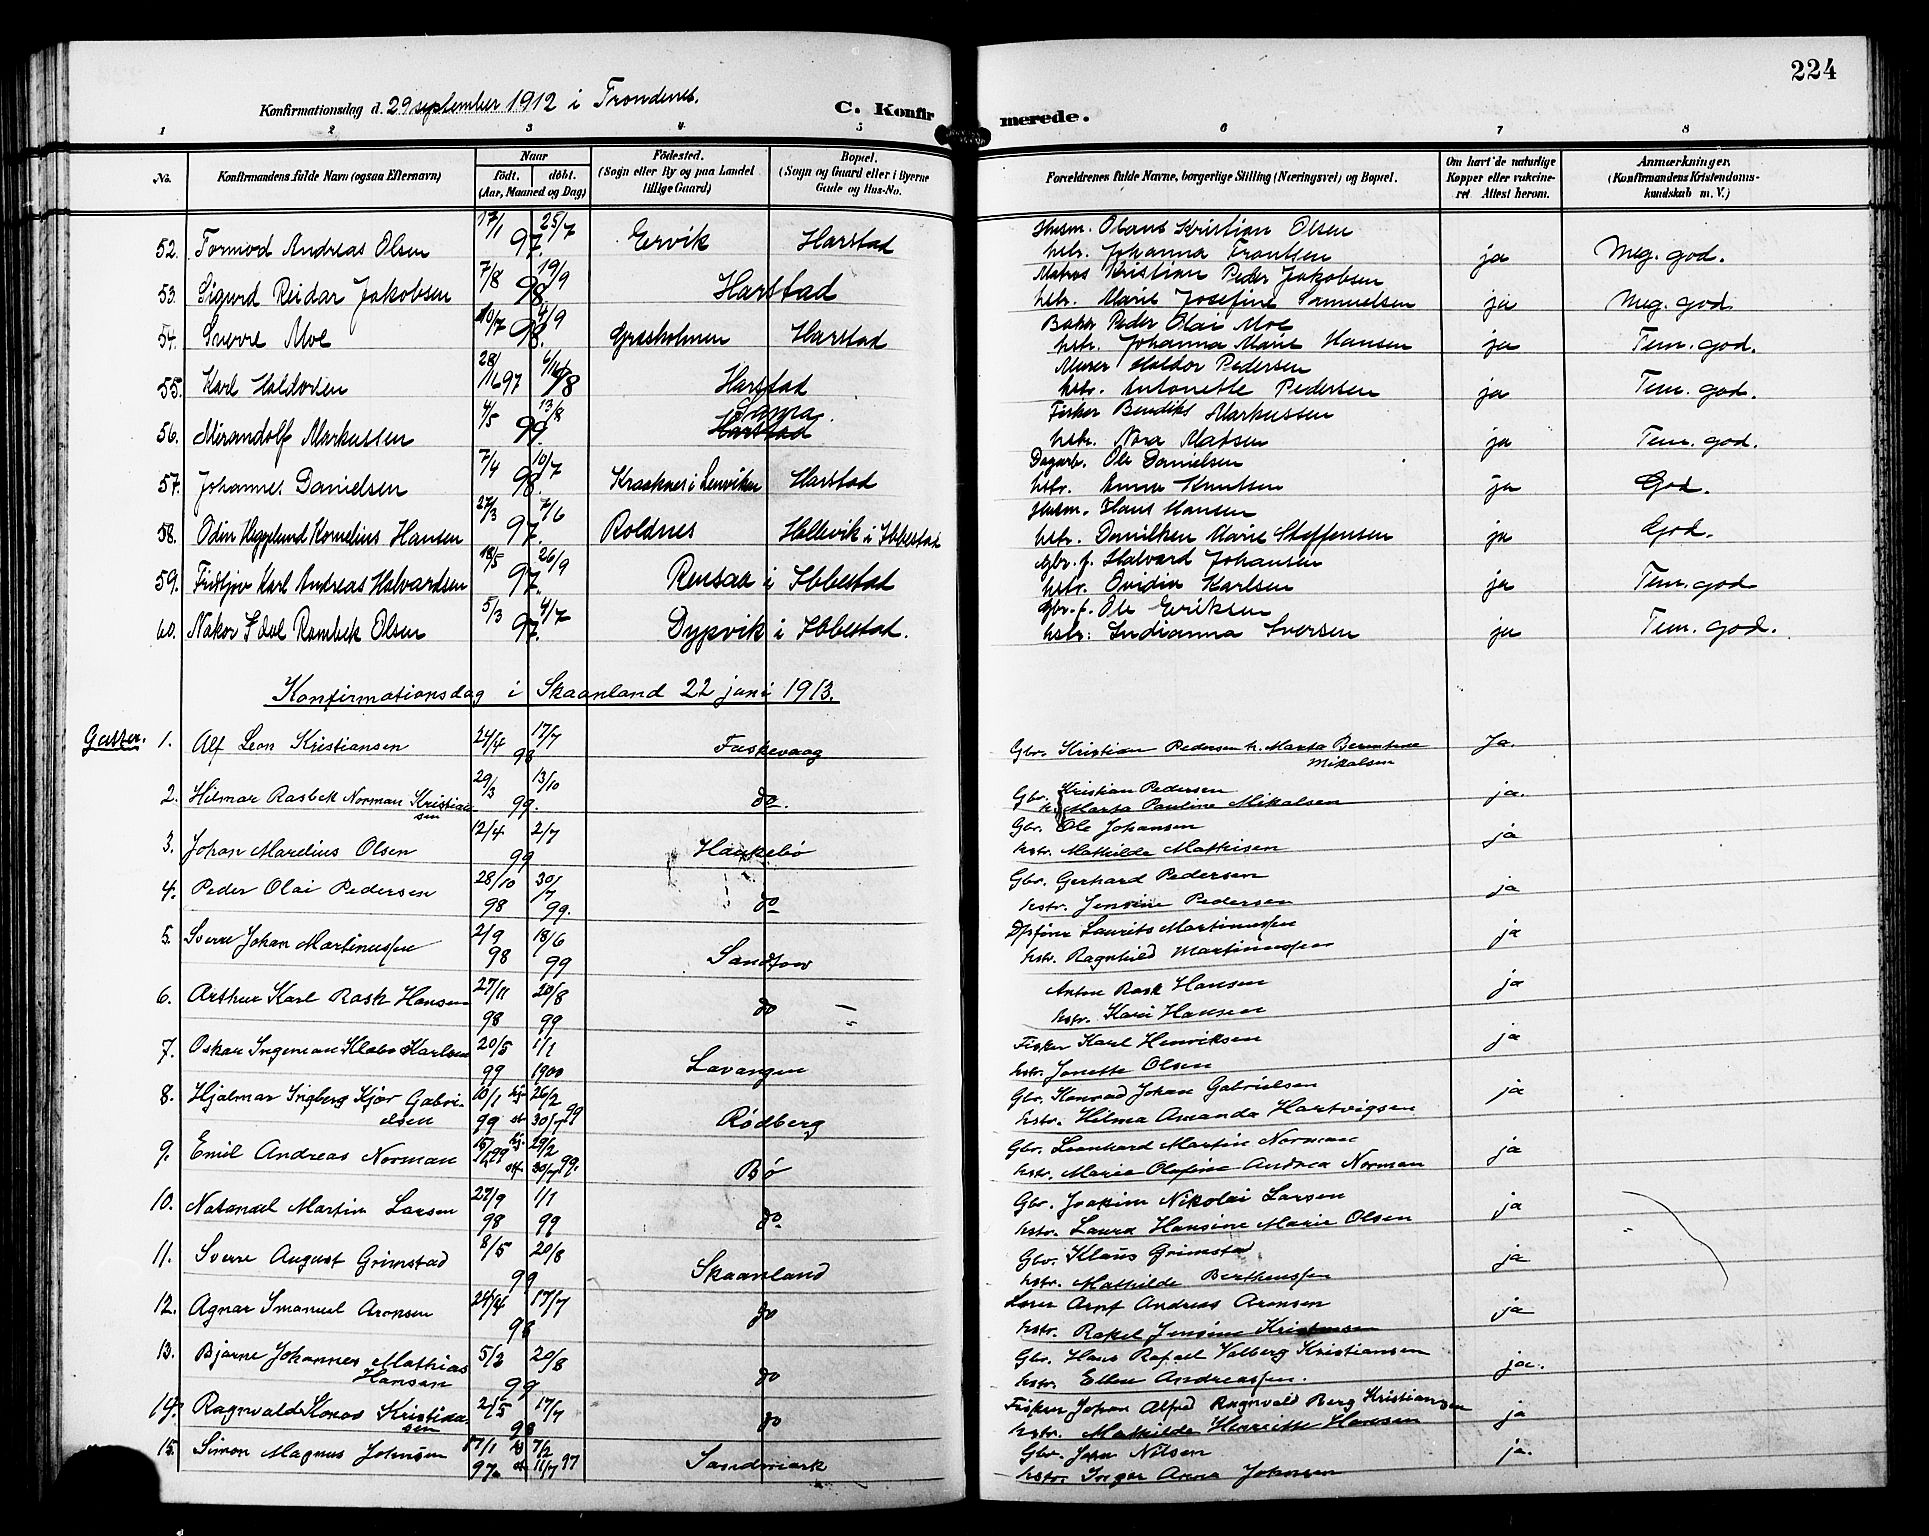 224
Konfirmationsdag d. 29 september 1912 i Trondenes.
C. Konfirmerede.
1 2 3 4 5 6 7 8
No. Konfirmandens fulde Navn (ogsaa Efternavn) Naar Født. døbt. (Aar, Maaned og Dag) Fødested. (Sogn eller By og paa Landet tillige Gaard) Bopæl. (Sogn og Gaard eller i Byerne Gade og Hus-No. Forældrenes fulde Navne, borgerlige Stilling (Næringsvei) og Bopæl. Om havt de naturlige Kopper eller vaccineret Attest herom. Anmærkninger. (Konfirmandens Kristendomskundskab m. V.)
52. Tormod Andreas Olsen 17/1 25/7 97. Ervik Harstad Husm. Olaus Kristian Olsen
hstr. Johanna Frantsen ja Meg. god.
53. Sigurd Reidar Jakobsen 7/8 19/9 98 Harstad Matros Kristian Peder Jakobsen
hstr. Marie Josefine Samuelsen ja Meg. god
54. Sverre Moe 10/7 4/9 98. Græsholmen Harstad Baker Peder Olai Moe
hstr. Johanna Marie Hansen ja Tem. god.
55. Karl Haldorsen 28/11 97 6/11 98 Harstad Murer Haldor Pedersen
hstr. Antonette Pedersen ja Tem. god.
56. Mirandolf Markussen 4/5 13/8 99. Harstad Fisker Bendiks Markussen
hstr. Nora Matsen ja Tem. god.
57. Johannes Danielsen 7/4 10/7 98. Kraaknes i Lenviken Harstad Dagarb. Ole Danielsen
hstr. Anna Knutsen ja God.
58. Odin Hegglund Kornelius Hansen 27/3 7/6 97. Roldnes Hellevik i Ibbestad Husm. Hans Hansen
hstr. Domilken Marie Steffensen ja God.
59. Fridtjov Karl Andreas Halvardsen 18/5 26/9 97. Rensaa i Ibbestad Gbr. f. Halvard Johansen
hstr. Ovidia Karlsen ja Tem. god
60. Nakor Edvl Rombek Olsen 5/3 4/7 97. Dypvik i Ibbestad. Gbr. f. Ole Eriksen
hstr. Indianna Iversen ja Tem. god.
Konfirmationsdag i Skaanland 22 juni 1913.
Gutter. 1. Alf Leon Kristiansen 24/4 17/7 98 Fuskevaag Gbr. Kristian Pedersen h. Marta
Mikalsen Ja.
2. Hilmar Rasbek Norman Kristiansen 29/3 13/10 99. do. Gbr. Kristian Pedersen
h. Marta Pauline Mikalsen ja.
3. Johan Marelius Olsen 12/4 2/7 99 Haukebø Gbr. Ole Johansen
hstr. Mathilde Mathisen ja
4. Peder Olai Pedersen 28/10 98 30/7 99. do Gbr. Gerhard Pedersen
hstr. Jensine Pedersen ja
5. Sverre Johan Martinussen 2/9 98 18/6 99 Laurits Martinussen
hstr. Ragnhild Martinussen ja
6. Arthur Karl Rask Hansen 27/11 98 20/8 99 do Anton Rask Hansen
hstr. Kari Hansen ja
7. Oskar Ingeman Klæbo Karlsen 20/5 99 1/1 1900 Lavangen Fisker Karl Henriksen
hstr. Janette Olsen ja
8. Hjalmar Ingberg Kjær Gabrielsen 10/1 99 hj. 26/2 st. 30/7 99 Rødberg Gbr. Konrad Johan Gabrielsen
hstr. Hilma Amanda Hartvigsen ja
9. Emil Andreas Norman 99 hj. 29/2 st. 30/7 99. Bø Gbr. Leonhard Martin Norman
hstr. Marie Olufine Andrea Norman ja
10. Natanael Martin Larsen 27/9 98 1/1 99 do Gbr. Joakim Nikolai Larsen
hstr. Laura Hansine Marie Olsen ja
11. Sverre August Grimstad 8/5 20/8 99 Skaanland Gbr. Klaus Grimstad
hstr. Mathilde Bertheussen ja
12. Agnar Imanuel Aronsen 24/4 17/7 98 do Lærer Arnt Andreas Aronsen
hstr. Rakel Jensine Kristensen ja
13. Bjarne Johannes Mathias Hansen 5/2 20/8 99 do Gbr. Hans Rafael Valberg Kristiansen
hstr. Ellen Andreassen. ja.
14. Ragnvald Konow Kristiansen 2/5 17/7 98 do Fisker Johan Alfred Ragnvald Berg Kristiansen
hstr. Mathilde Henriette Hansen ja
15. Simon Magnus Johnsen 17/1 97 hj 7/2 st 11/7 97 Sandmark Gbr. John Nilsen
hstr. Inger Anna Johnsen ja.